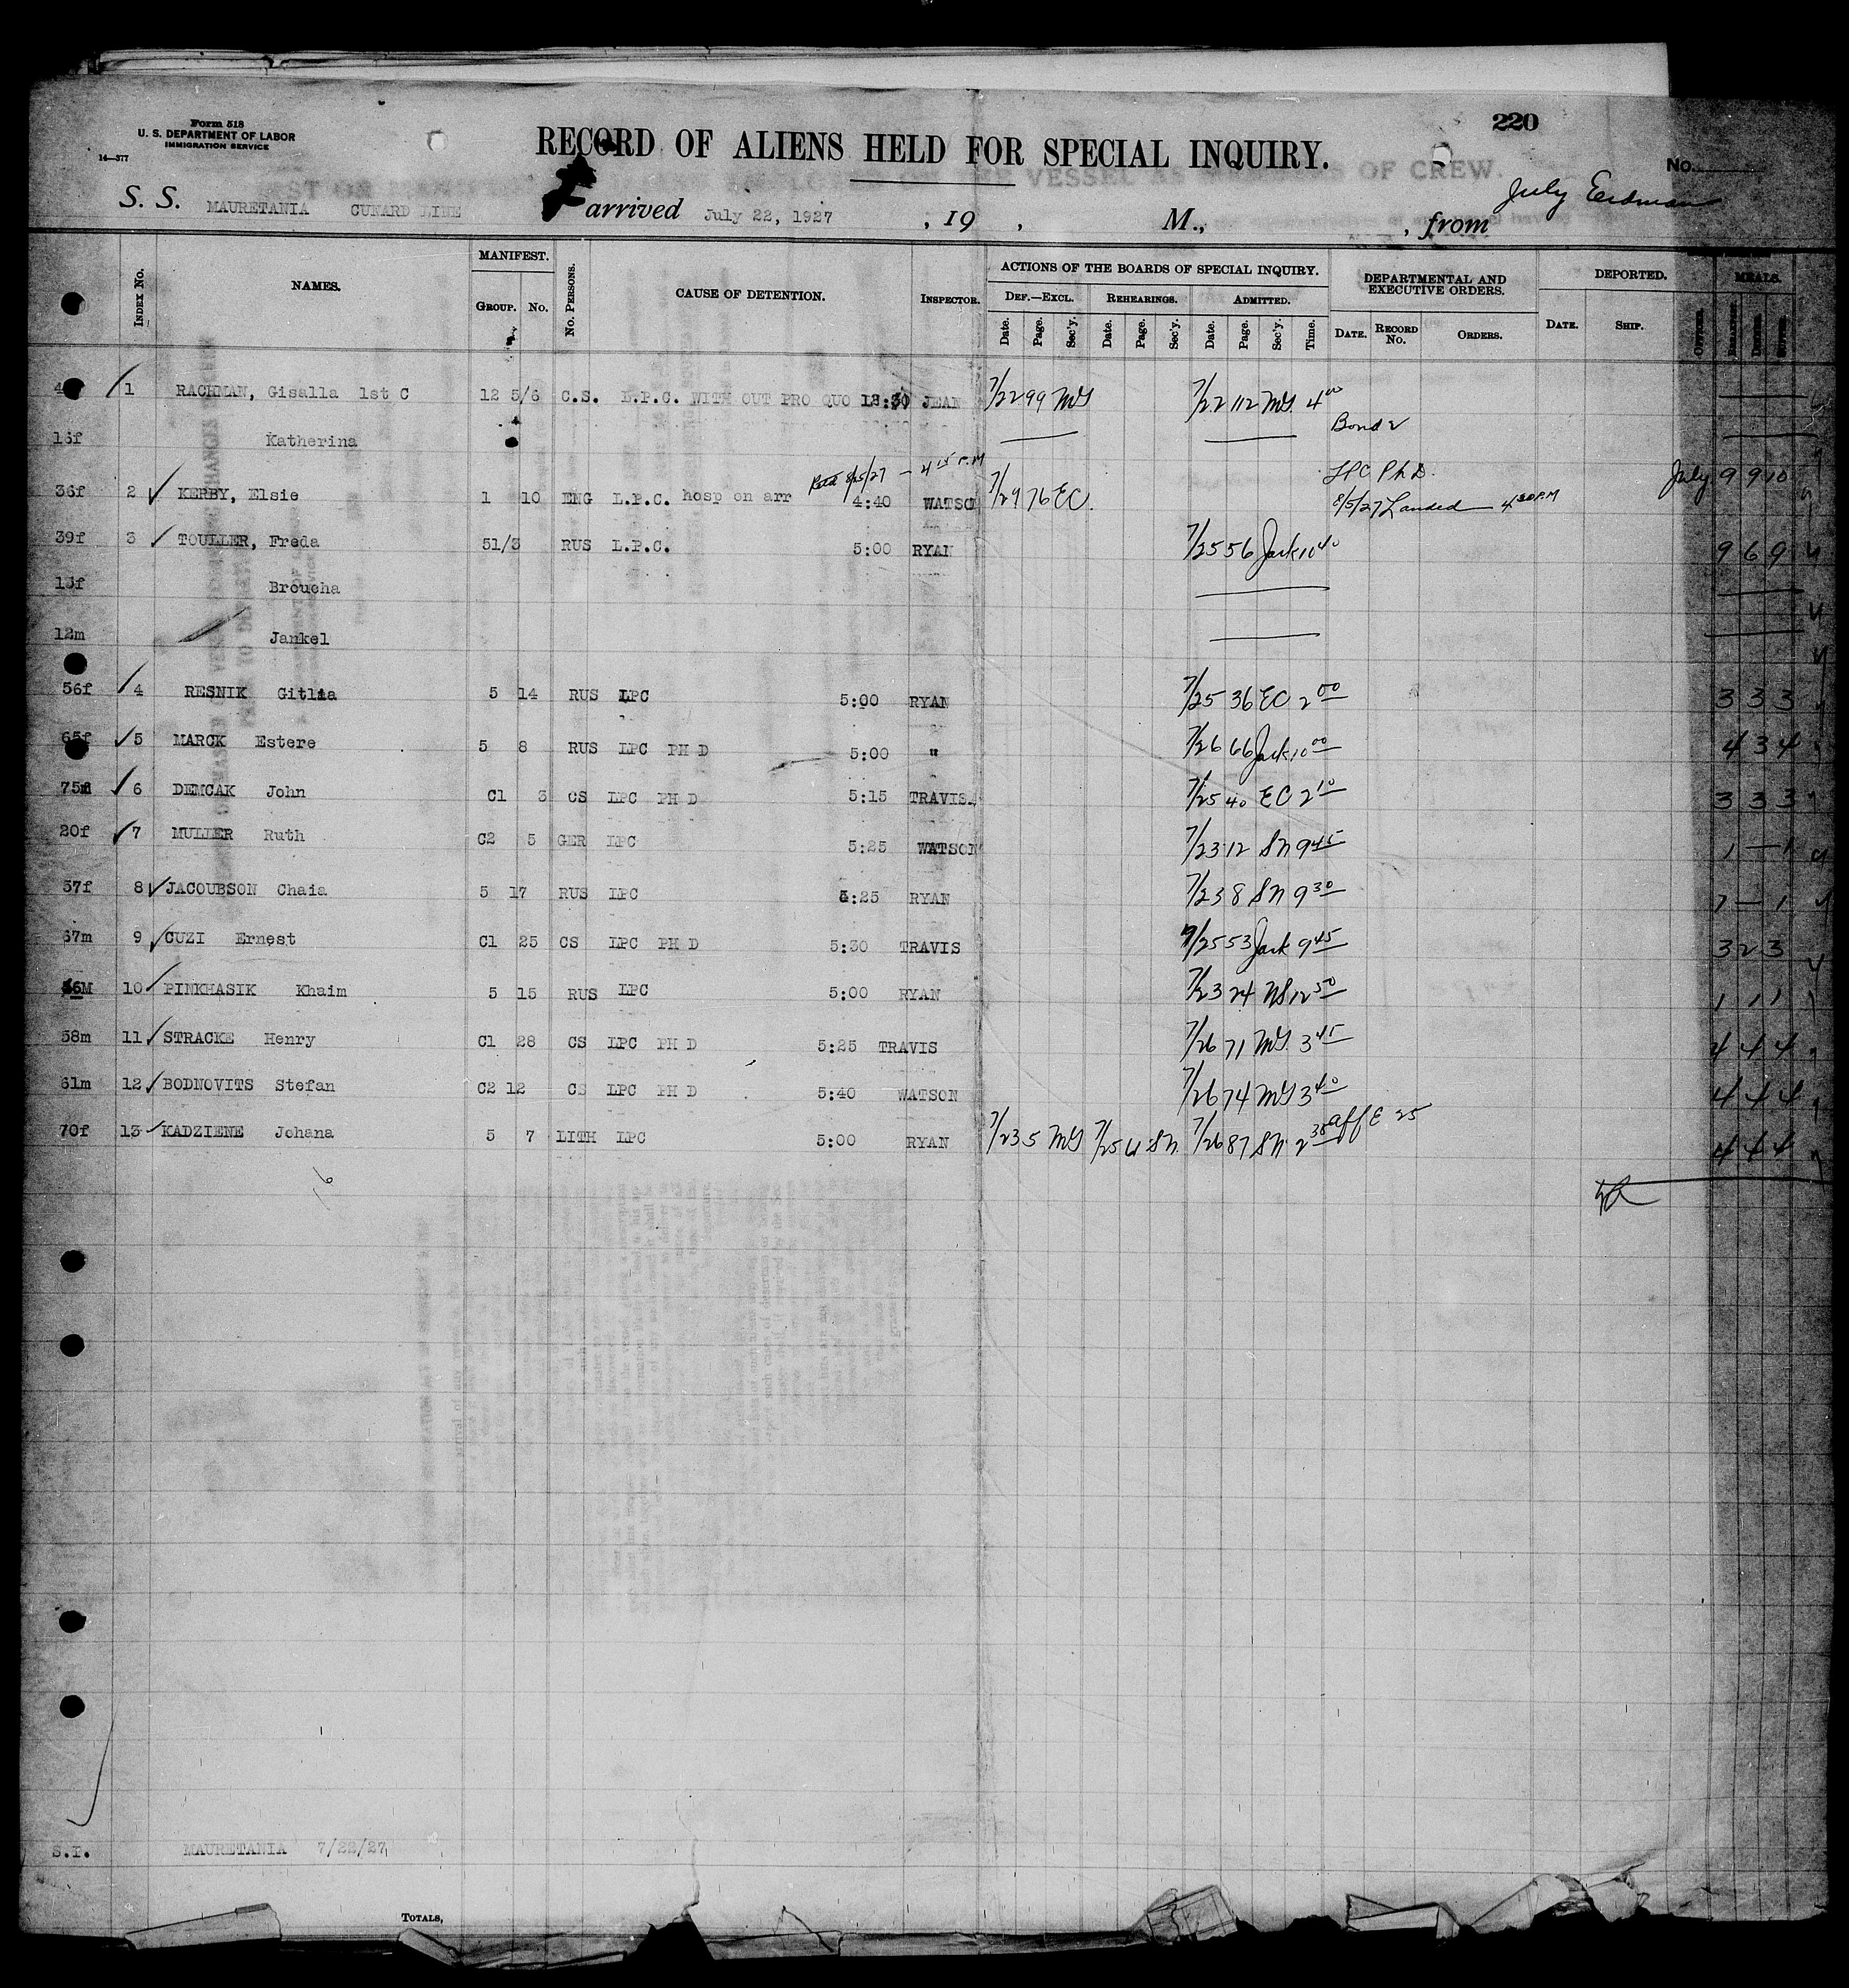 Form 518
U. S. DEPARTMENT OF LABOR
IMMIGRATION SERVICE
14—377
220
RECORD OF ALIENS HELD FOR SPECIAL INQUIRY.
No.
S. S. MAURETANIA CUNARD LINE arrived July 22, 1927 , 19 , M., , from July Eerdman
INDEX No. NAMES. MANIFEST. GROUP. No. No. PERSONS. CAUSE OF DETENTION. INSPECTOR. ACTIONS OF THE BOARDS OF SPECIAL INQUIRY. DEF.—EXCL. Date. Page. Sec'y. REHEARINGS. Date. Page. Sec'y. ADMITTED. Date. Page. Sec'y. Time. DEPARTMENTAL AND EXECUTIVE ORDERS. DATE. RECORD No. ORDERS. DEPORTED. DATE. SHIP. MEALS.
1 RACHMAN, Gisalla 1st C 12 5/6 C.S. L.P.C. WITH OUT PRO QUO JEAN 7/22 99 MG 7/22 112 MG 4 00
Bond 2
Katherina
4 15 P.M
LPC Ph D.
36f 2 KERBY, Elsie 1 10 ENG L.P.C. hosp on arr 4:40 WATSON 7/29 76 EC. 8/5/27 Landed 4 30 P.M July 9 9 10
39f 3 TOULLER, Freda 51/3 RUS L.P.C. 5:00 RYAN 7/25 56 Jark 10 40 9 6 9
Broucha
12m Jankel
56f 4 RESNIK 5 14 RUS LPC 5:00 RYAN 7/25 36 EC 2 00 3 3 3
65f 5 MARCK Estere 5 8 RUS LPC PH D 5:00 " 7/26 66 Jark 10 00 4 3 4
75m 6 DEMCAK John C1 3 CS LPC PH D 5:15 TRAVIS. 7/25 40 EC 2 10 3 3 3
20f 7 MULLER Ruth C2 5 GER LPC 5:25 WATSON 7/23 12 SN 9 45 1 — 1
57f 8 JACOUBSON Chaia 5 17 RUS LPC 5:25 RYAN 7/23 8 SN 9 30 1 — 1
67m 9 CUZI Ernest C1 25 CS LPC PH D 5:30 TRAVIS 7/25 53 Jark 9 45 3 2 3
10 PINKHASIK Khaim 5 15 RUS LPC 5:00 RYAN 7/23 24 NS 12 50 1 1 1
58m 11 STRACKE Henry C1 28 CS LPC PH D 5:25 TRAVIS 7/26 71 MG 3 45 4 4 4
61m 12 BODNOVITS Stefan C2 12 CS LPC PH D 5:40 WATSON 7/26 74 MG 3 40 4 4 4
70f 13 KADZIENE Johana 5 7 LITH LPC 5:00 RYAN 7/23 5 MG 7/25 61 SN. 7/26 87 SN 2 35 aff E 25 4 4 4
S.I. MAURETANIA 7/22/27
TOTALS,